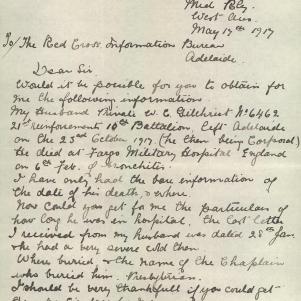 Mid Rly.
West Aus.
May 17th 1917
To/ The Red Cross Information Bureau
Adelaide.
Dear Sir
Would it be possible for you to obtain for
me the following information.
My Husband Private W. C. Gilchrist No 6462
21st reinforcements 10th Battalion, left Adelaide
on the 23rd October 1917. (he then being Corporal)
He died at Fargo Military Hospital England
on 6th Feb. of Bronchitis.
I have only had the bare information of
the date of his death, & where.
Now could you get for me the particulars of
how long he was in hospital, the last letter
I received from my husband was dated 28th Jan
& he had a very severe cold then.
Where buried, & the name of the Chaplain
who buried him. Presbyterian.
I should be very thankful if you could get